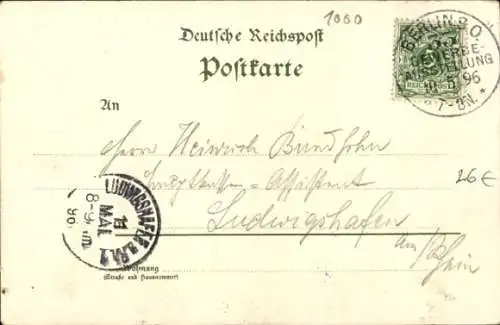 1000
Deutsche Reichspost
Postkarte
BERLIN S.O.
33
GEWERBE-
AUSSTELLUNG
5 96
7-8N. *
REICHSPOST
An
Herrn Heinrich
Hauptkassen-Assistent
26€
Ludwigshafen
am Rhein
LUDWIGSHAFEN a. RH. 1
11
MAI
8-9
96
Wohnung
(Straße und Hausnummer)